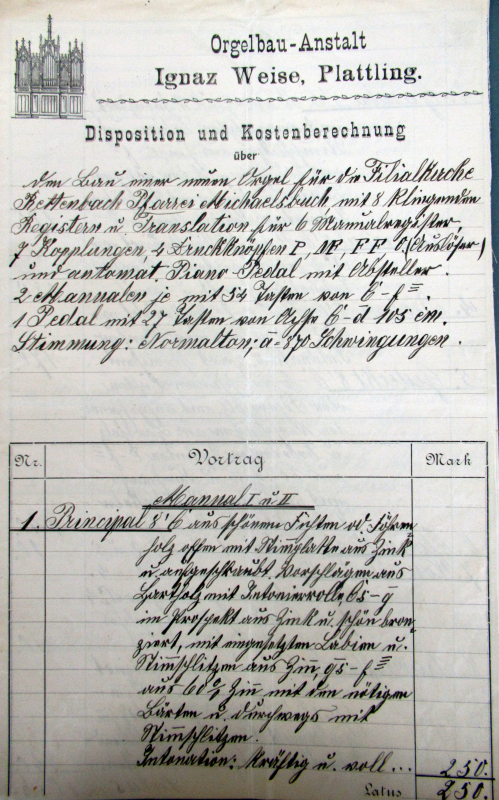 Orgelbau-Anstalt
Ignaz Weise, Plattling.
Disposition und Kostenberechnung
über
den Bau einer neuen Orgel für die Filialkirche
Rettenbach Pfarrei Michaelsbuch, mit 8 klingenden
Registern u. Translation für 6 Manualregister
7 Kopplungen, 4 Druckknöpfen P, MF, FF O. (Auslöser)
und automat. Piano-Pedal mit Absteller.
2 Manualen je mit 54 Tasten von C-f‴.
1 Pedal mit 27 Tasten von C-d 105 cm.
Stimmung: Normalton, a = 870 Schwingungen.
Nr. Vortrag Mark
Manual I u II
1. Principal 8' C aus schönem Fichten od. Föhren
holz offen mit Stimmplatte aus Zink
u. aufgeschraubt. Vorschlägen aus
Hartholz mit Intonierrolle, Cs-g
im Prospekt aus Zink u. schön bron
ziert, mit eingesetzten Labien u.
Stimmschlitzen aus Zinn, gs-f‴
aus 60 % Zinn mit den nötigen
Bärten u. durchwegs mit
Stimmschlitzen.
Intonation: kräftig u. voll... 250.
Latus 250.